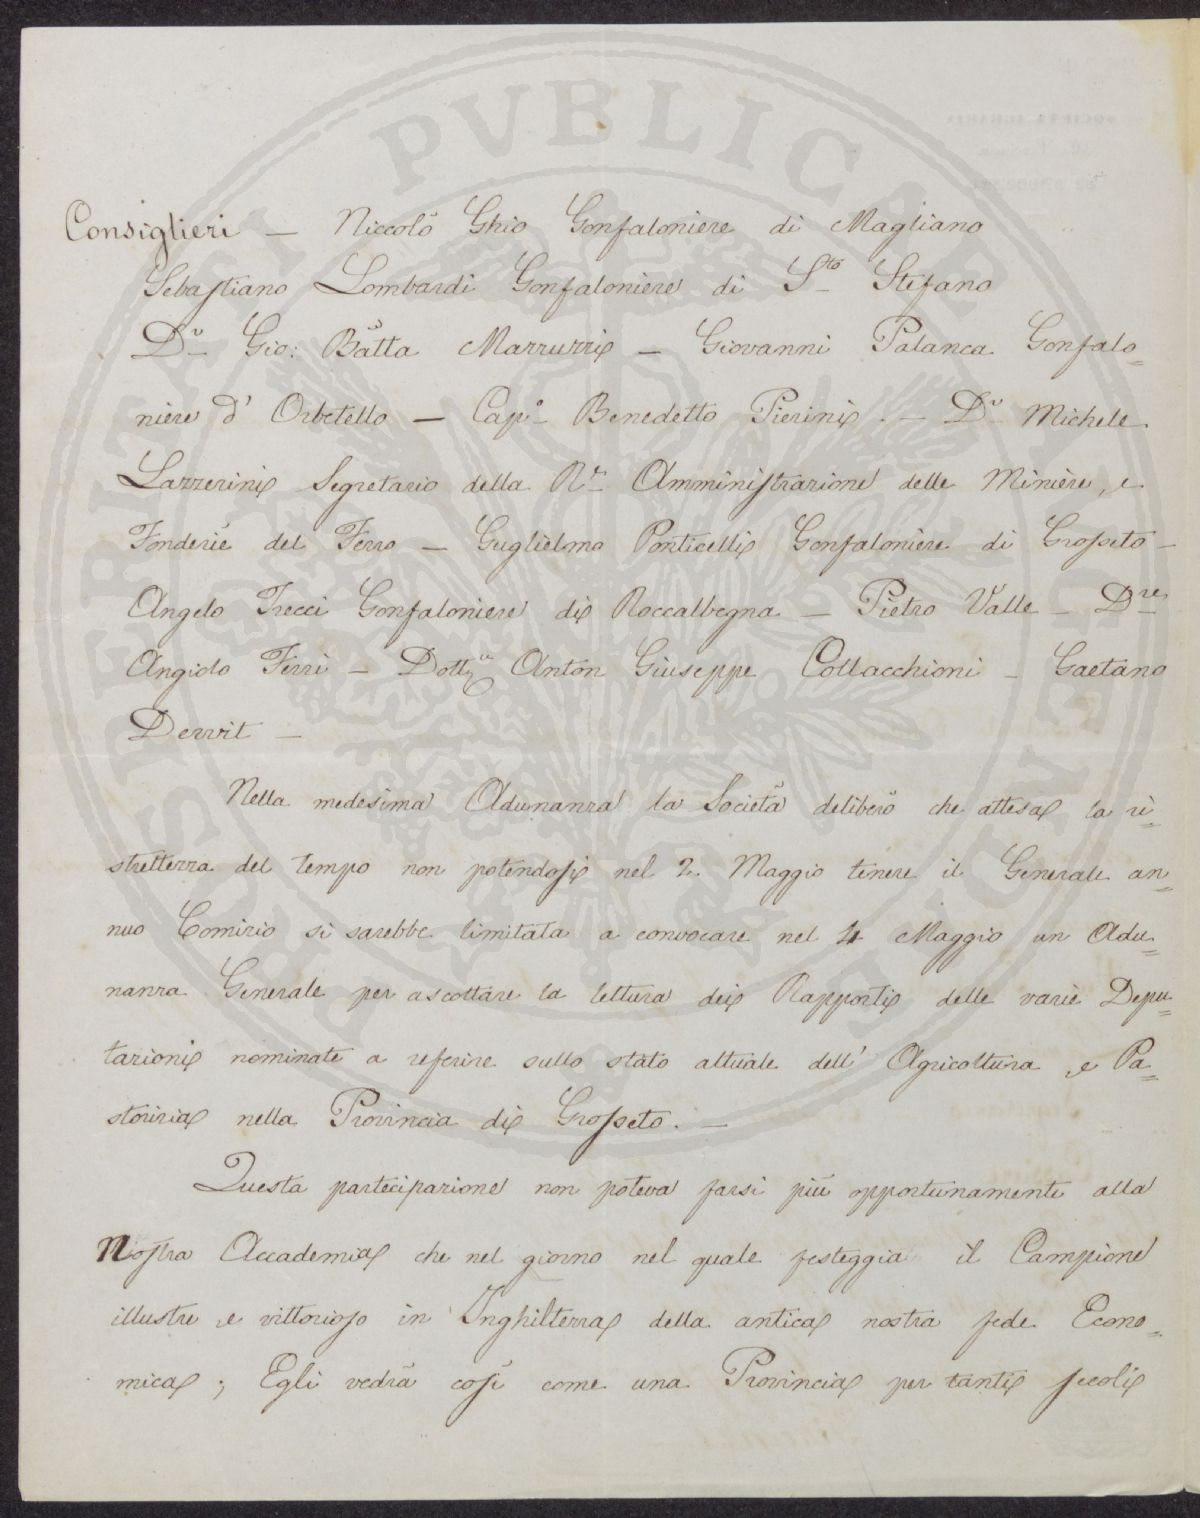 Consiglieri — Niccolò Ghio Gonfaloniere di Magliano
Sebastiano Lombardi Gonfaloniere di Sto Stefano
Dr Gio: Batta Mazzuzzi — Giovanni Palanca Gonfalo=
niere d' Orbetello — Capo Benedetto Pierini. — Dr Michele
Lazzerini Segretario della Ra Amministrazione delle Miniere, e
Fonderie del Ferro — Guglielmo Ponticelli Gonfaloniere di Grosseto —
Angelo Trecci Gonfaloniere di Roccalbegna — Pietro Valle — Dre
Angiolo Ferri — Dotte Anton Giuseppe Collacchioni — Gaetano
Dewit —
Nella medesima Adunanza la Società deliberò che attesa la ri=
strettezza del tempo non potendosi nel 2. Maggio tenere il Generale an=
nuo Comizio si sarebbe limitata a convocare nel 4 Maggio un Adu=
nanza Generale per ascoltare la lettura dei Rapporti delle varie Depu=
tazioni nominate a referire sullo stato attuale dell' Agricoltura, e Pa=
storizia nella Provincia di Grosseto. —
Questa partecipazione non poteva farsi più opportunamente alla
Nostra Accademia che nel giorno nel quale festeggia il Campione
illustre e vittorioso in Inghilterra della antica nostra fede Econo=
mica; Egli vedrà così come una Provincia per tanti secoli
PVBLICAE
PROSPERITATI